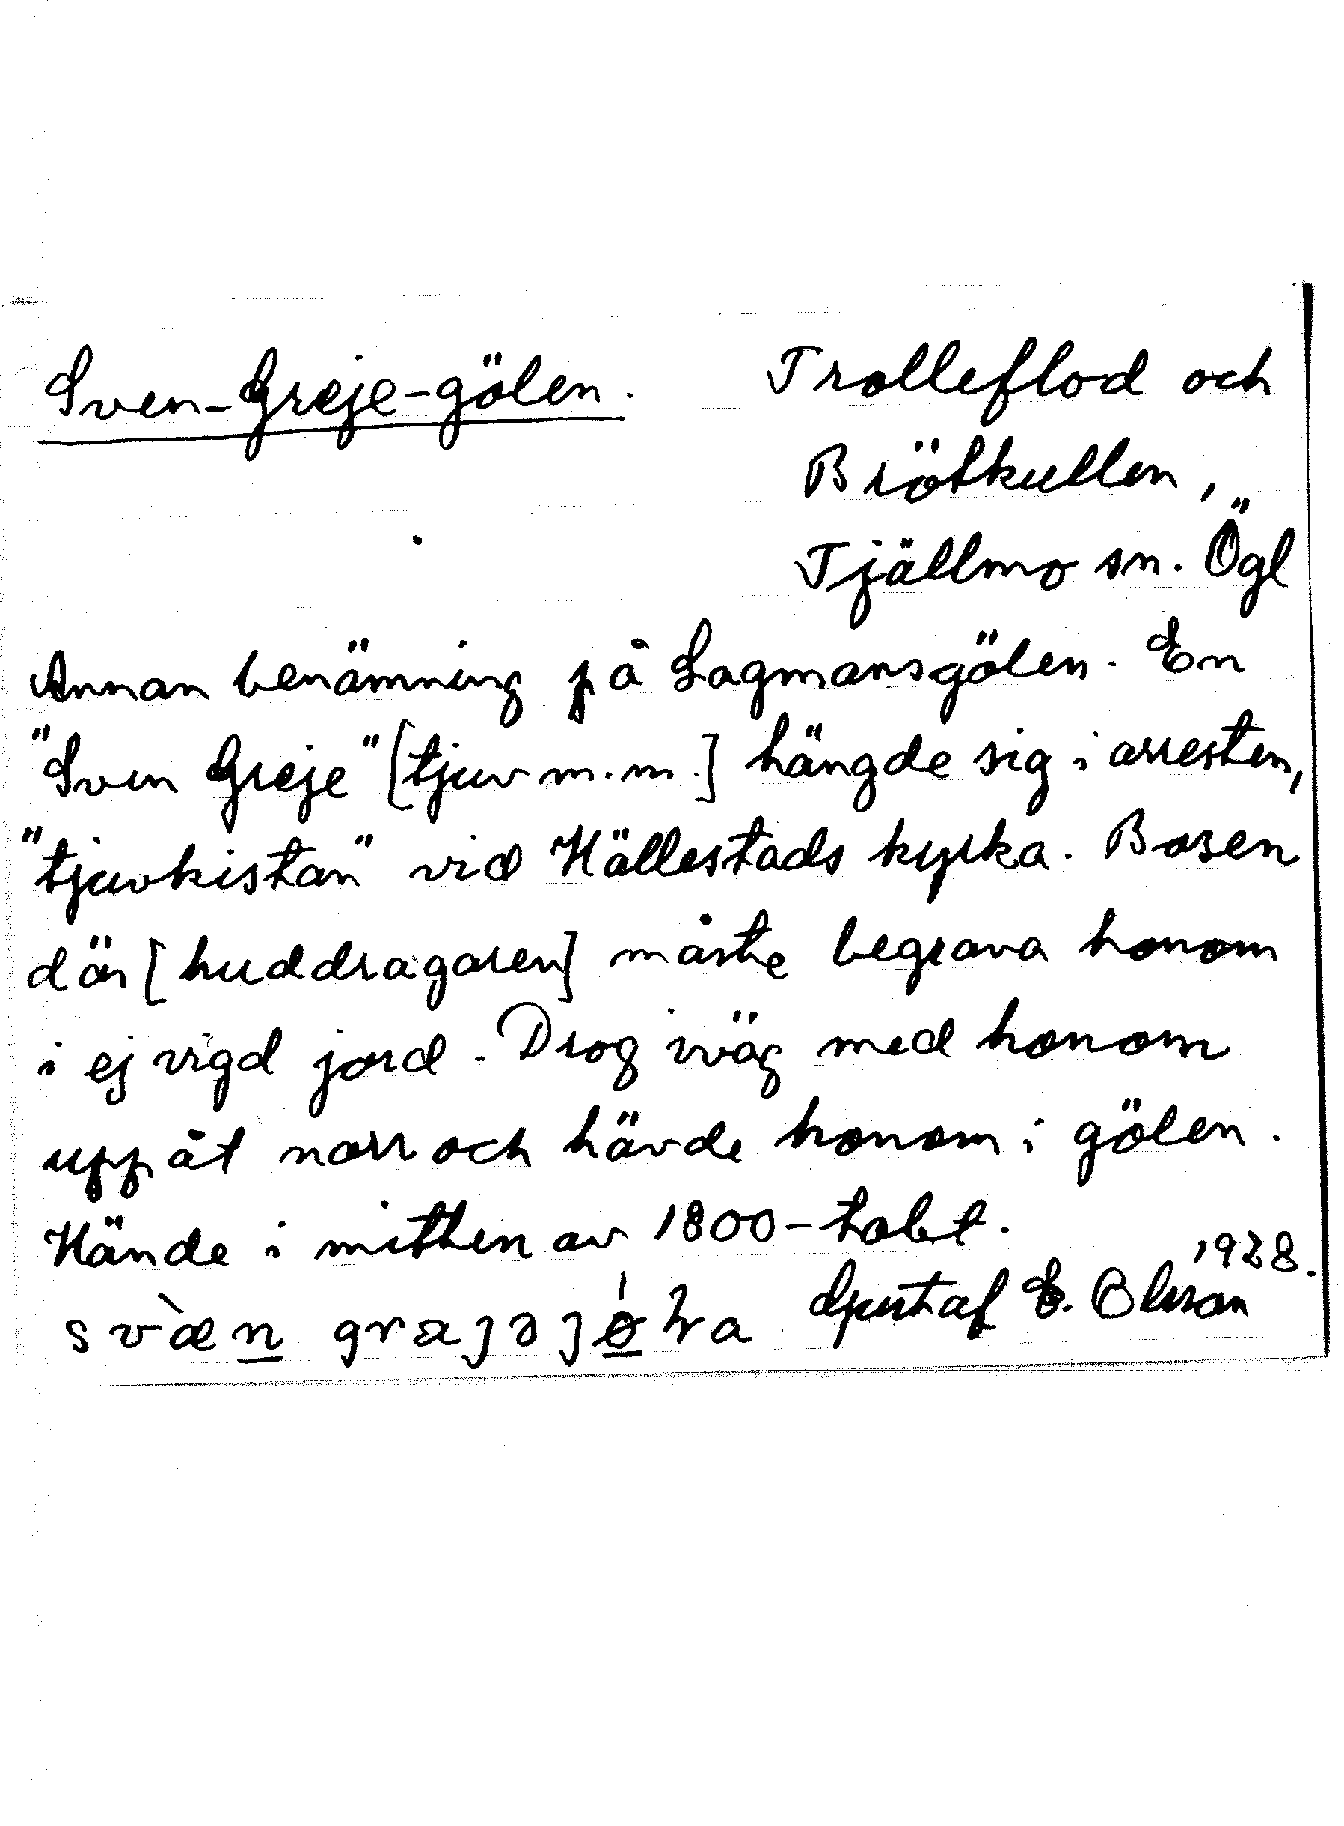 Sven-Greje-gölen. Trolleflod och
Brötkullen,
Tjällmo sn. Ögl
Annan benämning på Lagmansgölen. En
"Sven Greje" [tjuv m.m.] hängde sig i arresten,
"tjuvkistan" vid Hällestads kyrka. Basen
där [huddragaren] måste begrava honom
i ej vigd jord. Drog iväg med honom
uppåt norr och hävde honom i gölen.
Hände i mitten av 1800-talet.
1928.
Gustaf E. Olsson